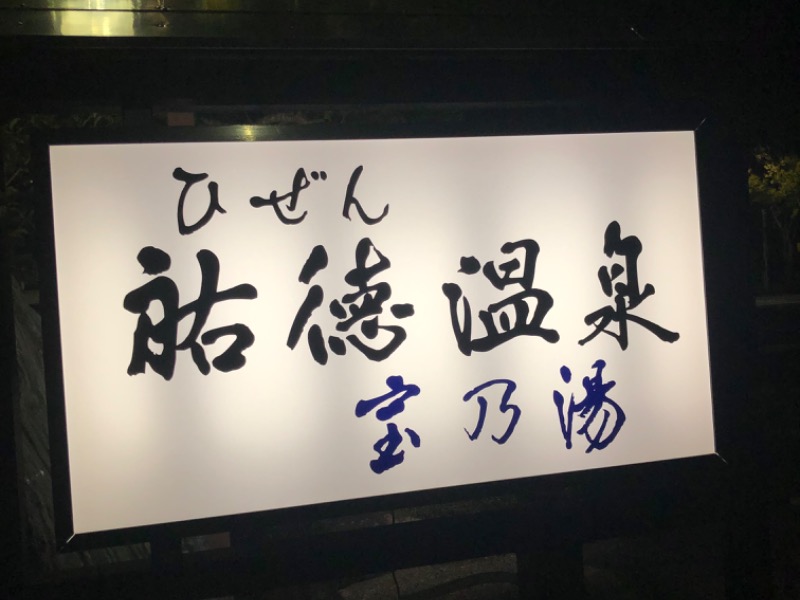 ひぜん
祐徳温泉
宝乃湯